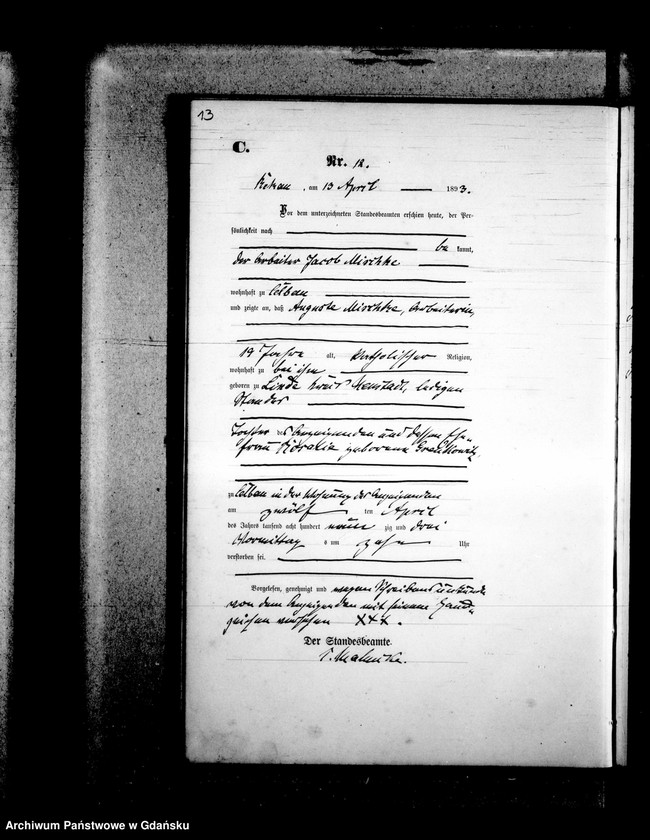 13
C.
Nr. 12.
am 13 April 1893.
Vor dem unterzeichneten Standesbeamten erschien heute, der Per-
sönlichkeit nach
be kannt,
der Arbeiter Jacob Mischke
wohnhaft zu Cißau
und zeigte an, daß Auguste Mischke, Arbeiterin,
19 Jahre alt, katholischer Religion,
wohnhaft zu bei ihm
geboren zu Linde Kreis Neustadt, ledigen
Standes
Tochter des Anzeigenden und dessen Ehe-
frau Rosalie geborene
zu Cißau in der Wohnung des Anzeigenden
am zwölf ten April
des Jahres tausend acht hundert neun zig und drei
Vormittag s um zehn Uhr
verstorben sei.
Vorgelesen, genehmigt und wegen Schreibensunkunde
von dem Anzeigenden mit seinem Hand-
zeichen versehen XXX.
Der Standesbeamte.
Archiwum Państwowe w Gdańsku